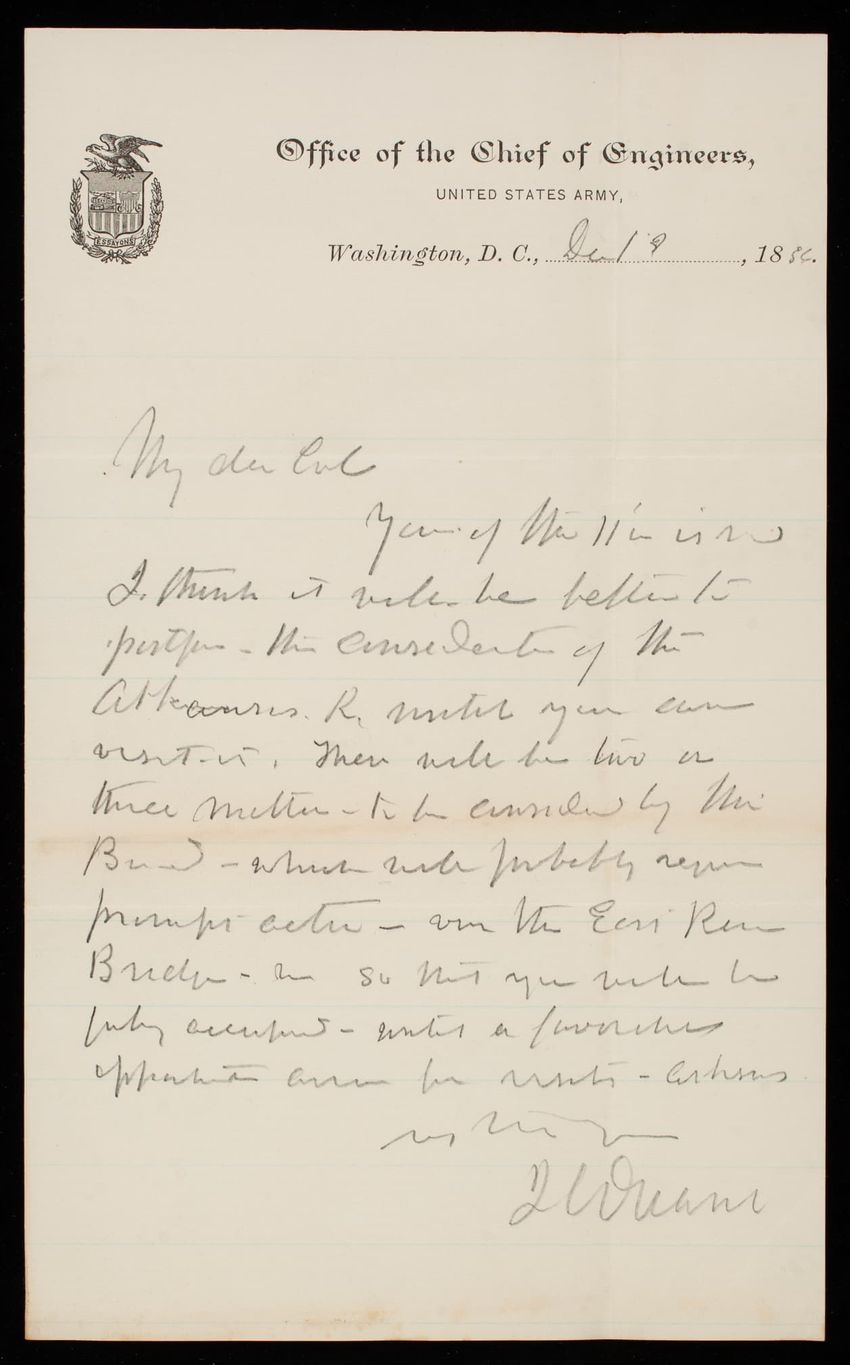 Office of the Chief of Engineers,
UNITED STATES ARMY,
Washington, D. C., Dec 18, 1886.
ESSAYONS
My dear Col
Yours of the 11th is
I think it will be better to
postpone the consideration of the
Arkansas R. until you can
visit it. There will be two or
three matters to be considered by the
Board - which will probably require
prompt action - the East River
Bridge - so that you will be
fully occupied - until a favorable
opportunity for visiting - Arkansas
J C Duane